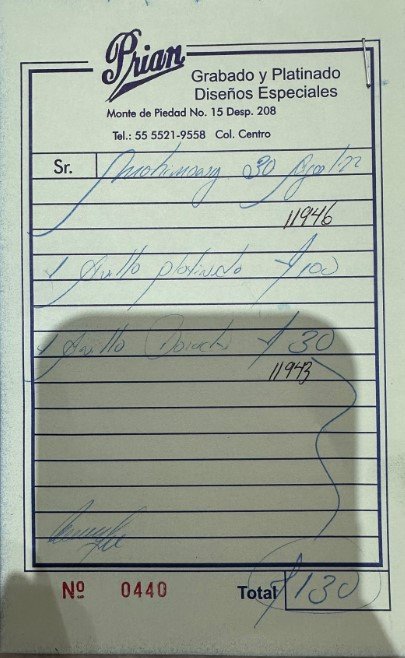 Prian
Grabado y Platinado
Diseños Especiales
Monte de Piedad No. 15 Desp. 208
Tel.: 55 5521-9558 Col. Centro
Sr. 30
11946
1 Anillo platinado $100
1 Anillo $30
11943
Nº 0440 Total $130